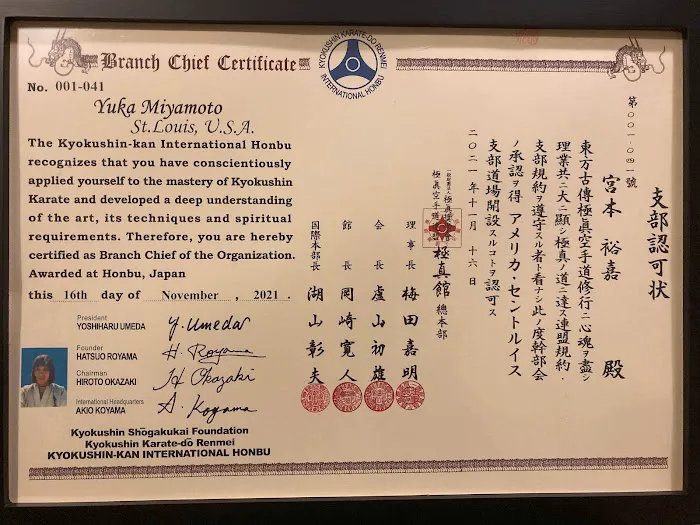 Branch Chief Certificate
KYOKUSHIN KARATE-DO RENMEI
INTERNATIONAL HONBU
No. 001-041
Yuka Miyamoto
St.Louis, U.S.A.
The Kyokushin-kan International Honbu
recognizes that you have conscientiously
applied yourself to the mastery of Kyokushin
Karate and developed a deep understanding
of the art, its techniques and spiritual
requirements. Therefore, you are hereby
certified as Branch Chief of the Organization.
Awarded at Honbu, Japan
this 16th day of November, 2021.
President
YOSHIHARU UMEDA
Y. Umeda
Founder
HATSUO ROYAMA
H. Royama
Chairman
HIROTO OKAZAKI
H Okazaki
International Headquarters
AKIO KOYAMA
A. Koyama
Kyokushin Shōgakukai Foundation
Kyokushin Karate-dō Renmei
KYOKUSHIN-KAN INTERNATIONAL HONBU
支部認可状
第〇〇一-〇四一號
宮本 裕嘉 殿
東方古傳極真空手道修行ニ心魂ヲ盡シ
理業共ニ大ニ顯シ極真ノ道ニ達ス連盟規約・
支部規約ヲ遵守スル者ト看ナシ此ノ度幹部会
ノ承認ヲ得 アメリカ・セントルイス
支部道場開設スルコトヲ認可ス
二〇二一年十一月 十六日
極真館 總本部
理事長 梅田嘉明
会長 盧山初雄
館長 岡崎寛人
国際本部長 湖山彰夫